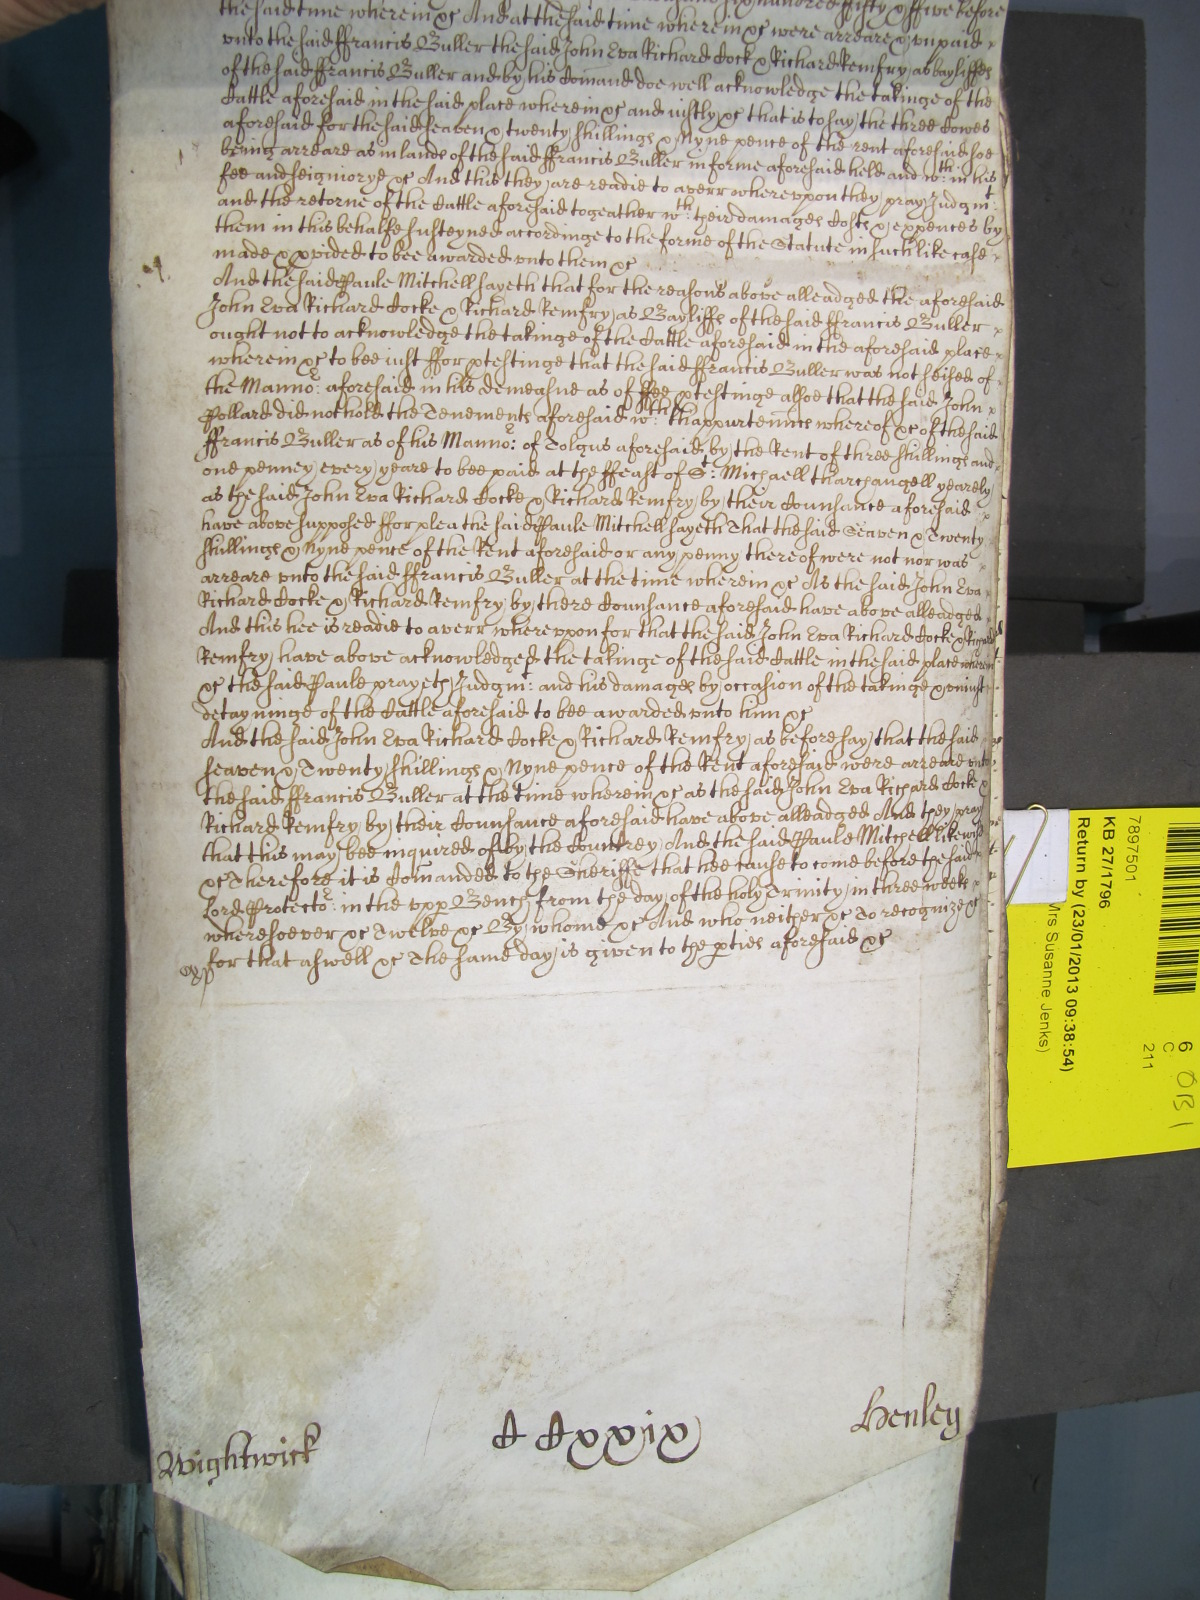 the said time wherein &c And at the said time wherein &c were arreare & unpaid
unto the said ffrancis Buller the said John Eva Richard Cock & Richard Remfry as bayliffes
of the said ffrancis Buller and by his Comand doe well acknowledge the takinge of the
Cattle aforesaid in the said place wherein &c and iustly &c that is to say the three Cowes
aforesaid for the said seaven & twenty shillings & Nyne pence of the rent aforesaid soe
being arreare as in lands of the said ffrancis Buller in forme aforesaid held and wth: in his
fee and seigniorye &c And this they are readie to averr whereupon they pray Judgmt:
and the retorne of the Cattle aforesaid togeather wth: their damages Costs & expences by
them in this behalfe susteyned accordinge to the forme of the Statute in such like case
made & pvided to bee awarded unto them &c
And the said Paule Mitchell sayeth that for the reasons above alleadged the aforesaid
John Eva Richard Cocke & Richard Remfry as Bayliffs of the said ffrancis Buller
ought not to acknowledge the takinge of the Cattle aforesaid in the aforesaid place
wherein &c to bee iust ffor ptestinge that the said ffrancis Buller was not seised of
the Manno:r aforesaid in his demeasne as of ffee ptestinge alsoe that the said John
Pollard did not hold the Tenements aforesaid wth: thappurtennces whereof &c of the said
ffrancis Buller as of his Manno:r of Tolgus aforesaid by the Rent of three shillings and
one penney every yeare to bee paid at the ffeast of St: Michaell tharchangell yearely
as the said John Eva Richard Cocke & Richard Remfry by their Counsance aforesaid
have above supposed ffor plea the said Paule Mitchell sayeth That the said Seaven & Twenty
shillings & Nyne pence of the Rent aforesaid or any penny thereof were not nor was
arreare unto the said ffrancis Buller at the time wherein &c As the said John Eva
Richard Cocke & Richard Remfry by there Counsance aforesaid have above alleadged
And this hee is readie to averr whereupon for that the said John Eva Richard Cocke & Richard
Remfry have above acknowledged the takinge of the said Cattle in the said place wherein
&c the said Paule prayeth Judgmt: and his damages by occasion of the takinge & uniust
detayninge of the Cattle aforesaid to bee awarded unto him &c
And the said John Eva Richard Cocke & Richard Remfry as before say that the said
seaven & Twenty shillings & Nyne pence of the Rent aforesaid were arreare unto
the said ffrancis Buller at the time wherein &c as the said John Eva Richard Cock &
Richard Remfry by their Counsance aforesaid have above alleadged And they pray
that this may bee inquired of by the Countrey And the said Paule Mitchell likewise
&c Therefore it is Comanded to the Sheriffe that hee cause to come before the said
Lord Protecto:r in the upp Bench from the day of the holy Trinity in three weeks
wheresoever &c Twelve &c By whome &c And who neither &c To recognize &c
for that aswell &c The same day is given to the pties aforesaid &c
Wightwick
CCxxix
Henley
7897501
KB 27/1796
Return by (23/01/2013 09:38:54)
Mrs Susanne Jenks)
6
C
211
OB1